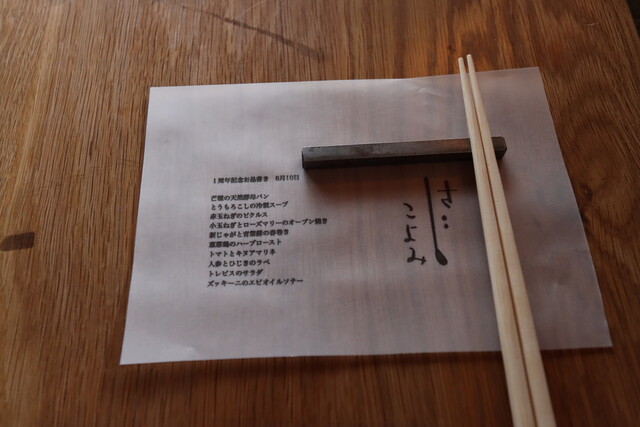 1周年記念お品書き　6月10日
芒種の天然酵母パン
とうもろこしの冷製スープ
赤玉ねぎのピクルス
小玉ねぎとローズマリーのオーブン焼き
新じゃがと青紫蘇の春巻き
恵那鶏のハーブロースト
トマトとキヌアマリネ
人参とひじきのラペ
トレビスのサラダ
ズッキーニのエビオイルソテー
こよみ